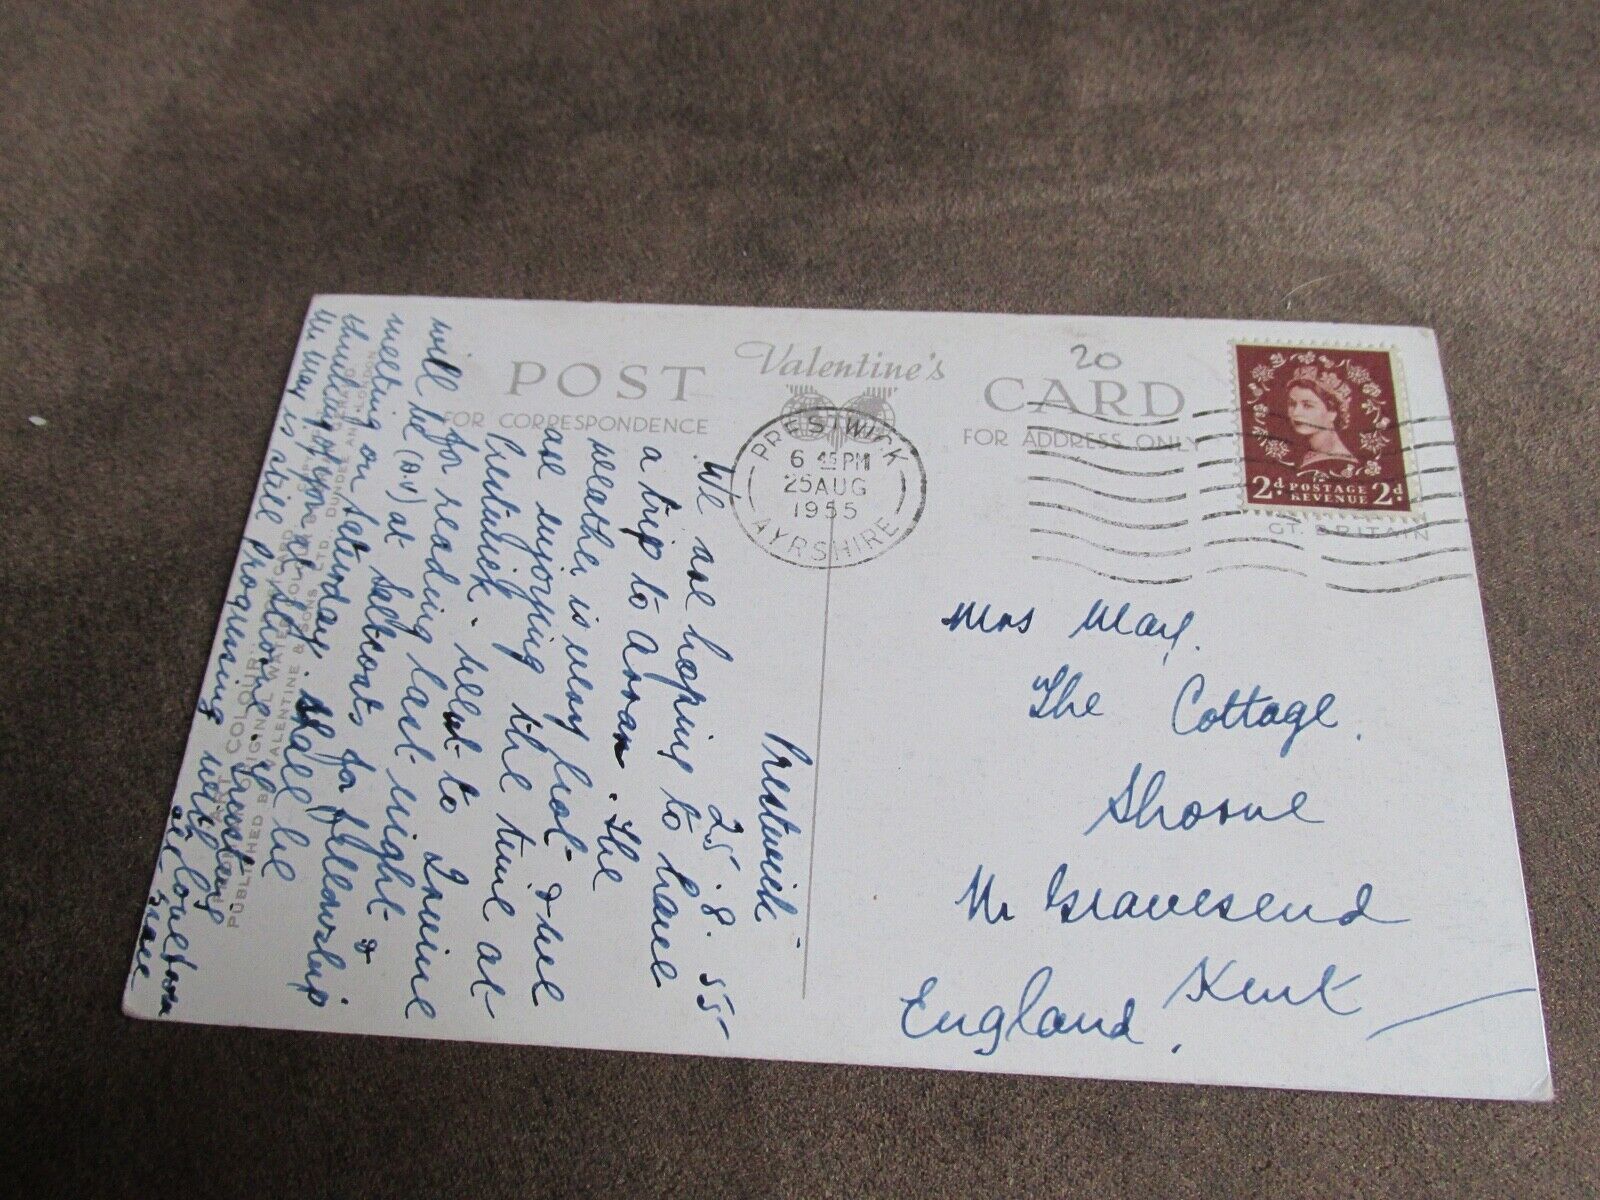 POST Valentine's CARD
20
FOR CORRESPONDENCE
FOR ADDRESS ONLY
PRESTWICK
6 45 PM
25 AUG
1955
AYRSHIRE
2d POSTAGE REVENUE 2d
GT. BRITAIN
Prestwick
25. 8. 55
We are hoping to have
a trip to Arran. The
weather is very hot & we
are enjoying the time at
Prestwick. went to Irvine
for reading last night &
will be (D.V) at Saltcoats for fellowship
meeting on Saturday. Shall be
thinking of you at Shorne. Trusting
Mr May is still progressing with
our love to you
Mrs May.
The Cottage.
Shorne
Nr Gravesend
Kent
England.
ART COLOUR.
PUBLISHED BY
VALENTINE & SONS LTD. DUNDEE AND LONDON